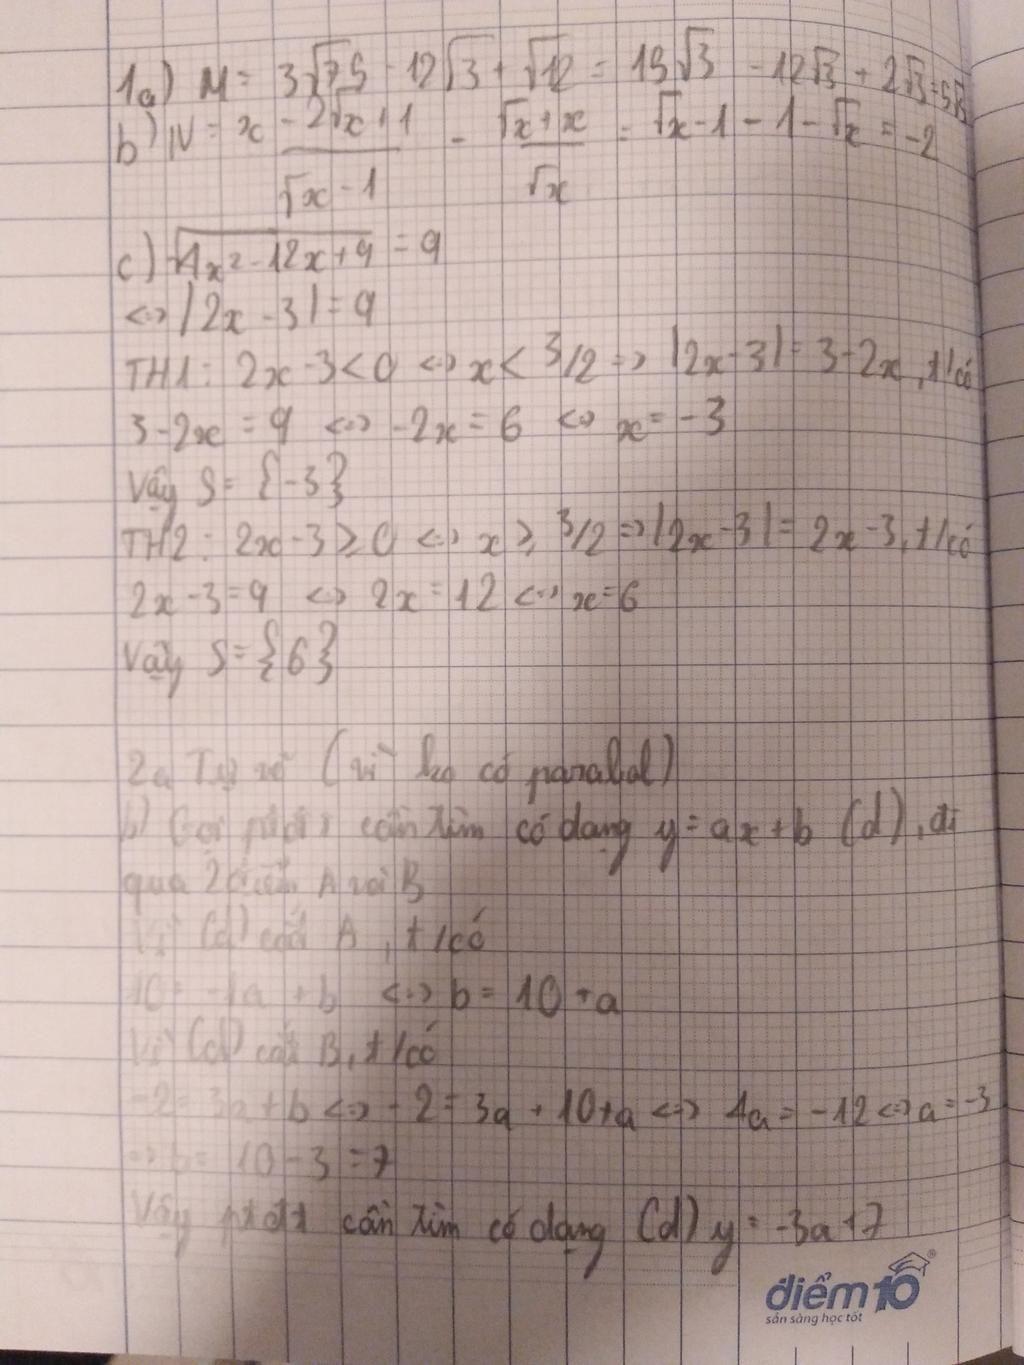 1a) M = 3√75 - 12√3 + √12 = 15√3 - 12√3 + 2√3 = 5√3
b) N = x - 2√x + 1 / √x - 1 - √x + x / √x = √x - 1 - 1 - √x = -2
c) √4x² - 12x + 9 = 9
<=> |2x - 3| = 9
TH1: 2x - 3 < 0 <=> x < 3/2 => |2x - 3| = 3 - 2x, t/có
3 - 2x = 9 <=> -2x = 6 <=> x = -3
Vậy S = {-3}
TH2: 2x - 3 ≥ 0 <=> x ≥ 3/2 => |2x - 3| = 2x - 3, t/có
2x - 3 = 9 <=> 2x = 12 <=> x = 6
Vậy S = {6}
2a Tự vẽ (vì ko có parabol)
b) Gọi ptđt cần tìm có dạng y = ax + b (d), đi
qua 2 điểm A và B
Vì (d) cắt A, t/có
10 = -1a + b <=> b = 10 + a
Vì (d) cắt B, t/có
-2 = 3a + b <=> -2 = 3a + 10 + a <=> 4a = -12 <=> a = -3
=> b = 10 - 3 = 7
Vậy ptđt cần tìm có dạng (d) y = -3a + 7
điểm10®
sẵn sàng học tốt